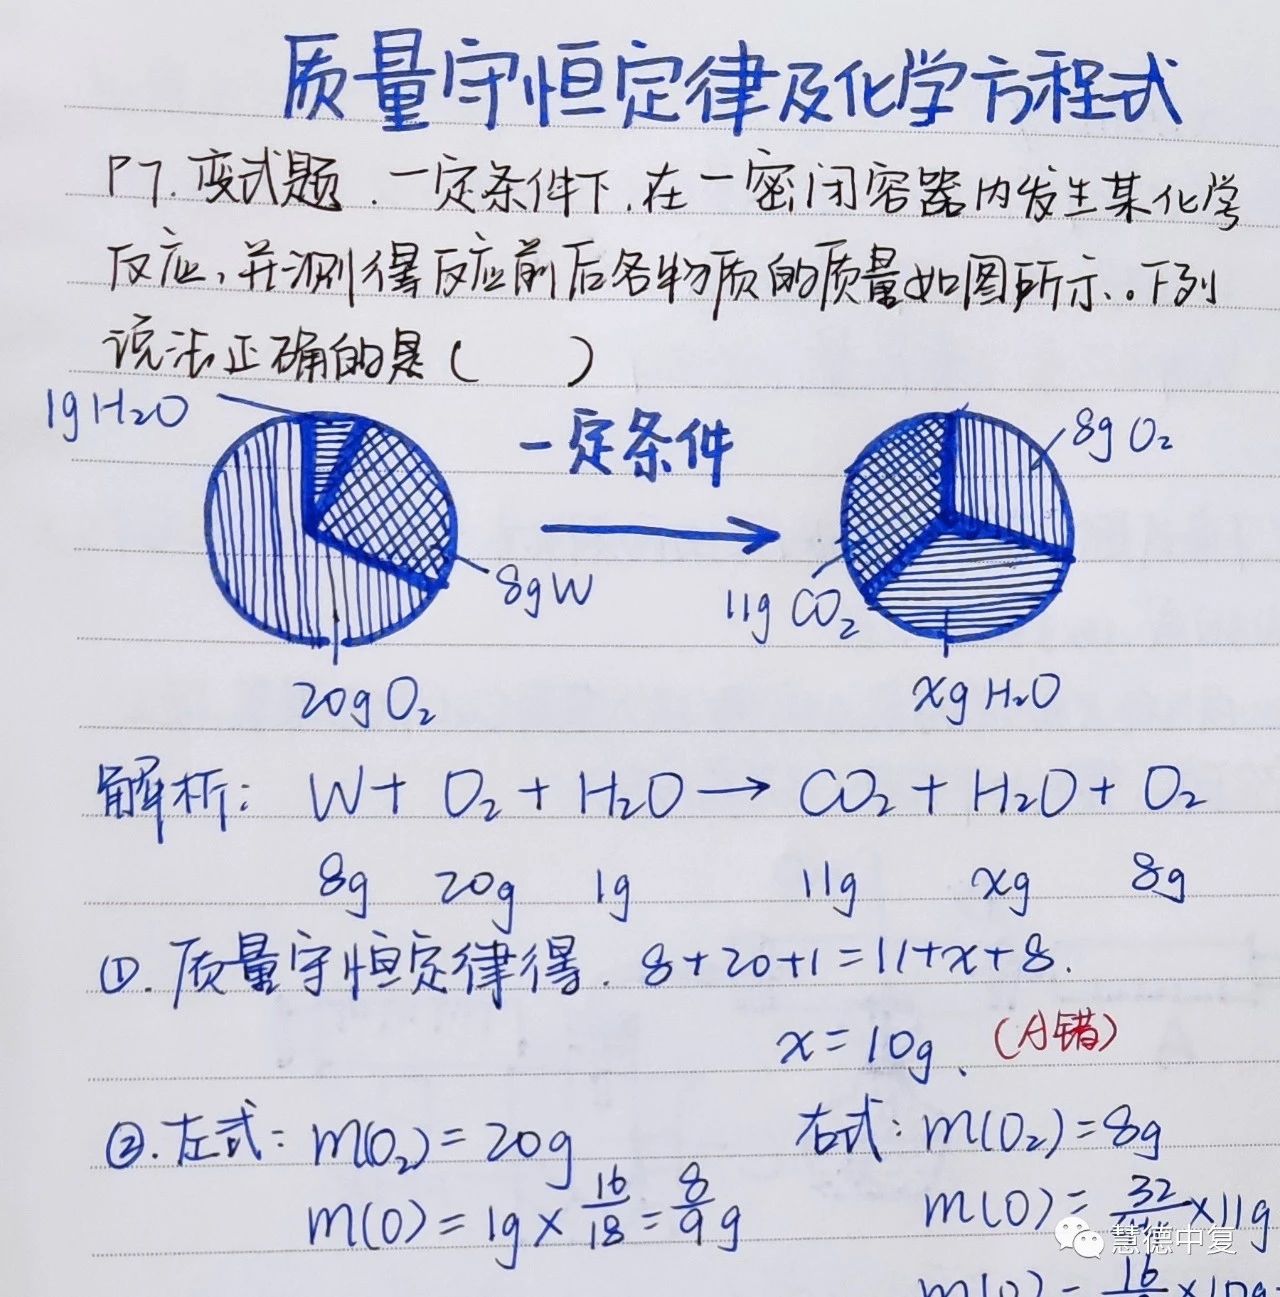 质量守恒定律及化学方程式
P7.变式题.一定条件下,在一密闭容器内发生某化学
反应,并测得反应前后各物质的质量如图所示。下列
说法正确的是(    )
1gH₂O
一定条件
8g O₂
8gW
11g CO₂
20g O₂
xg H₂O
解析: W + O₂ + H₂O → CO₂ + H₂O + O₂
8g 20g 1g 11g xg 8g
①.质量守恒定律得. 8+20+1=11+x+8.
x=10g、(A错)
②.左式: m(O₂)=20g 右式: m(O₂)=8g
m(O)=1g×16/18=8/9g m(O)=32/44×11g
慧德中复
m(O)=16/ ×10g